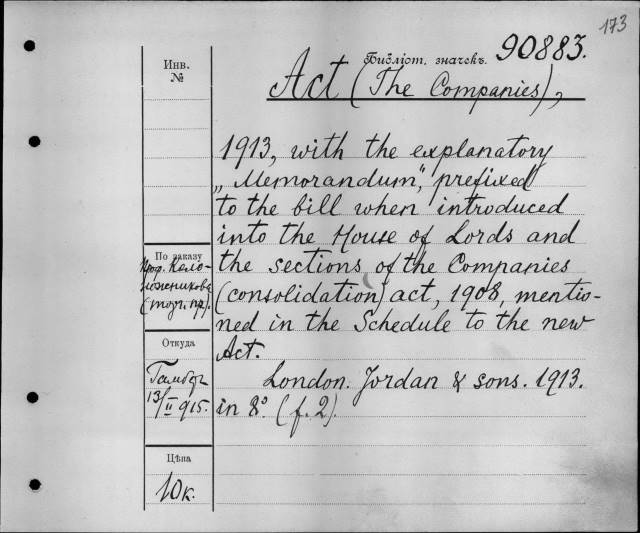 173
Библіот. значекъ. 90883.
Инв.
№
Act (The Companies),
1913, with the explanatory
„Memorandum", prefixed
to the bill when introduced
into the House of Lords and
the sections of the Companies
(consolidation) act, 1908, mentio-
ned in the Schedule to the new
Act.
London. Jordan & sons. 1913.
in 8º (f. 2).
По заказу
Проф.
Откуда
13/II 915.
Цѣна
10к.